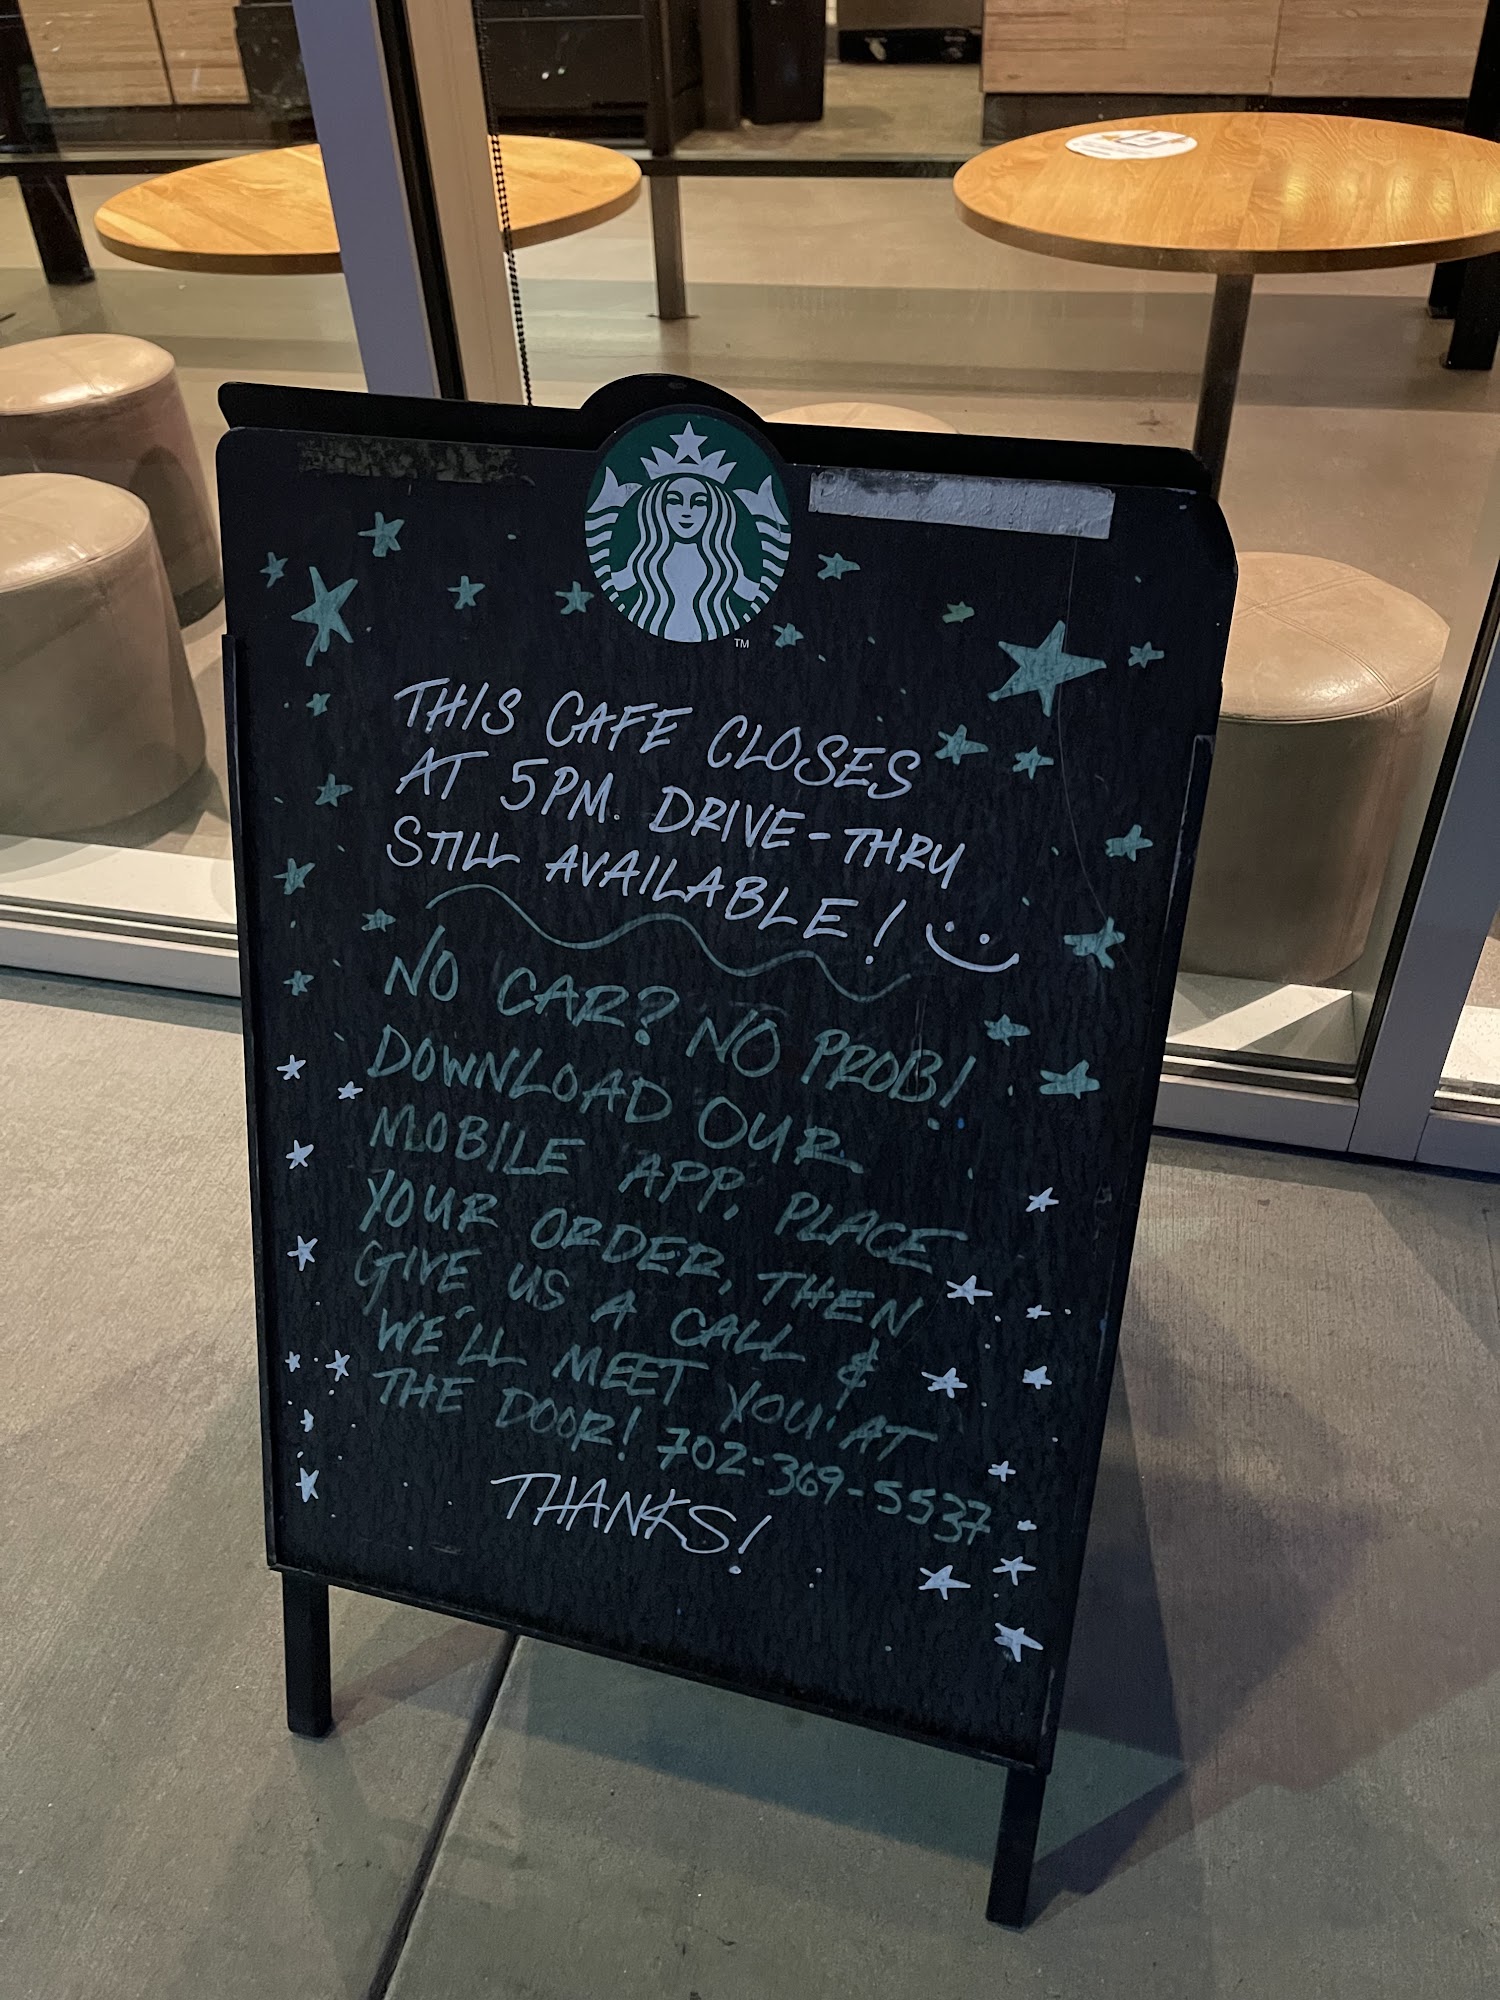 TM
THIS CAFE CLOSES
AT 5PM. DRIVE-THRU
STILL AVAILABLE!
NO CAR? NO PROB!
DOWNLOAD OUR
MOBILE APP, PLACE
YOUR ORDER, THEN
GIVE US A CALL &
WE'LL MEET YOU AT
THE DOOR! 702-369-5537
THANKS!